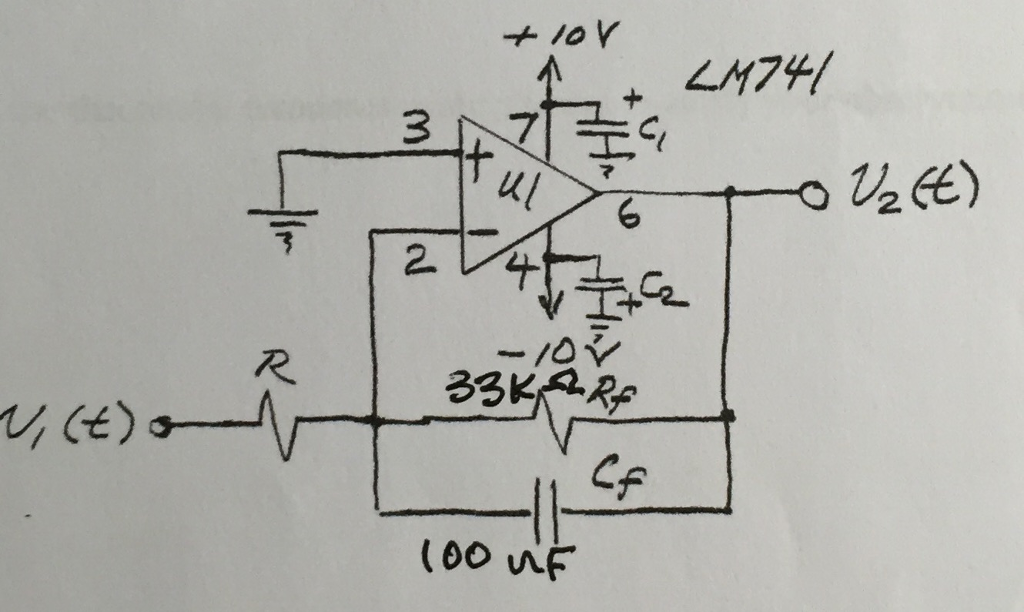 +10V
LM741
+
C1
3
7
+
U1
V2(t)
6
2
-
4
+
C2
-10V
R
33KΩ
Rf
V1(t)
Cf
100 nF